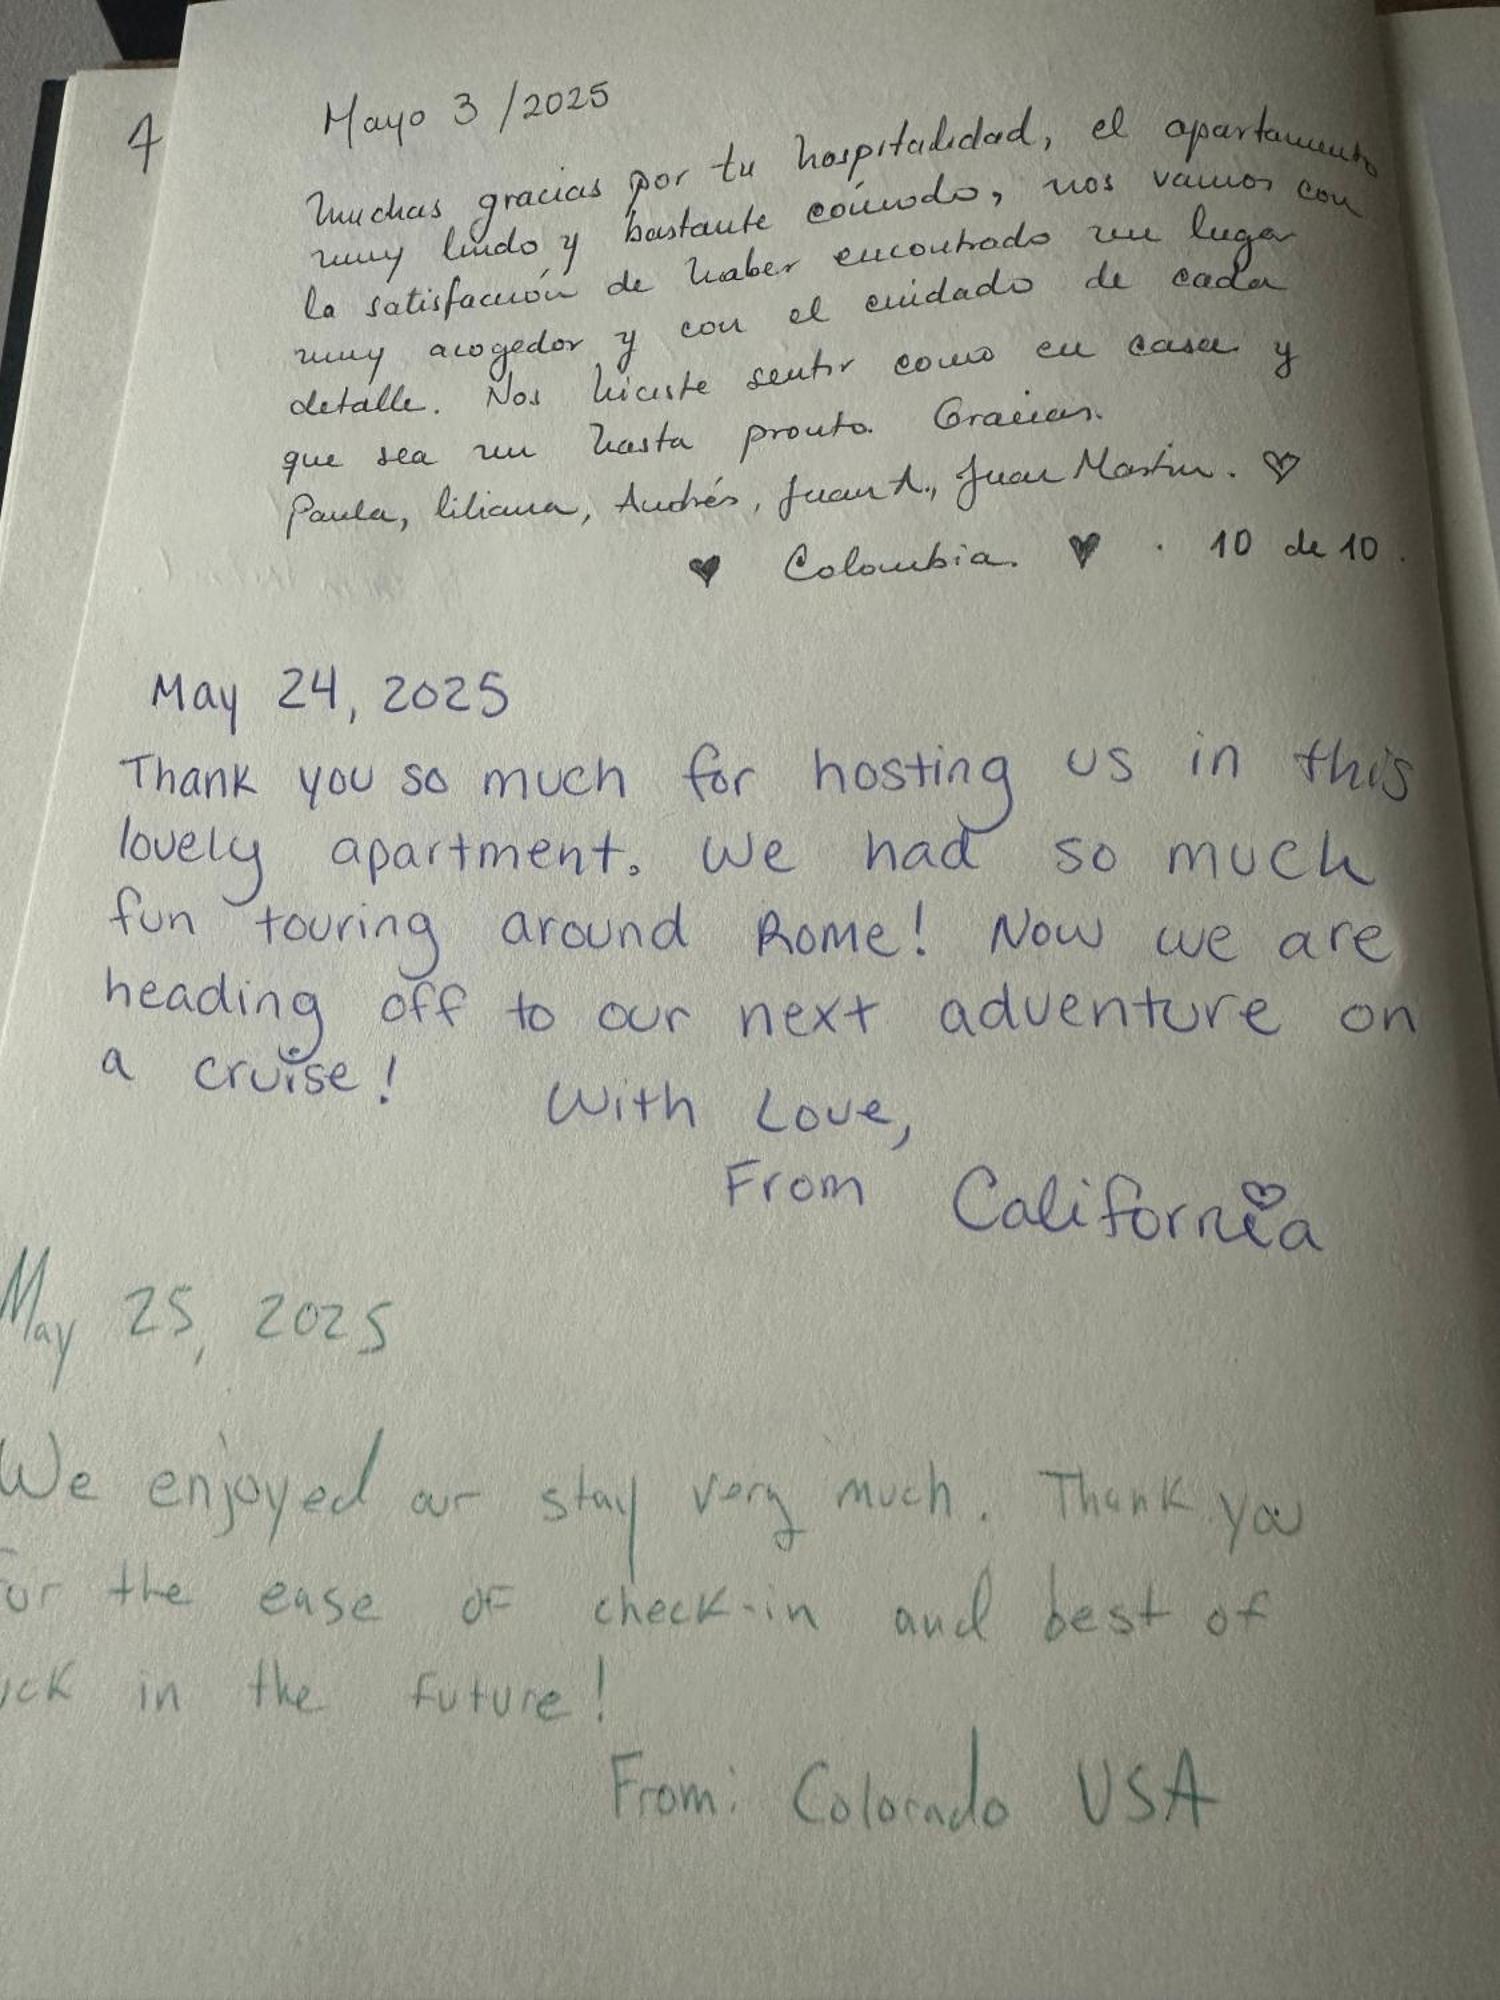 4
Mayo 3 /2025
Muchas gracias por tu hospitalidad, el apartamento
muy lindo y bastante cómodo, nos vamos con
la satisfacción de haber encontrado un lugar
muy acogedor y con el cuidado de cada
detalle. Nos hiciste sentir como en casa y
que sea un hasta pronto. Gracias.
Paula, Liliana, Andrés, Juan A., Juan Martin. ♡
♥ Colombia. ♥ . 10 de 10.
May 24, 2025
Thank you so much for hosting us in this
lovely apartment. We had so much
fun touring around Rome! Now we are
heading off to our next adventure on
a cruise!
With Love,
From California
May 25, 2025
We enjoyed our stay very much. Thank you
for the ease of check-in and best of
uck in the future!
From: Colorado USA